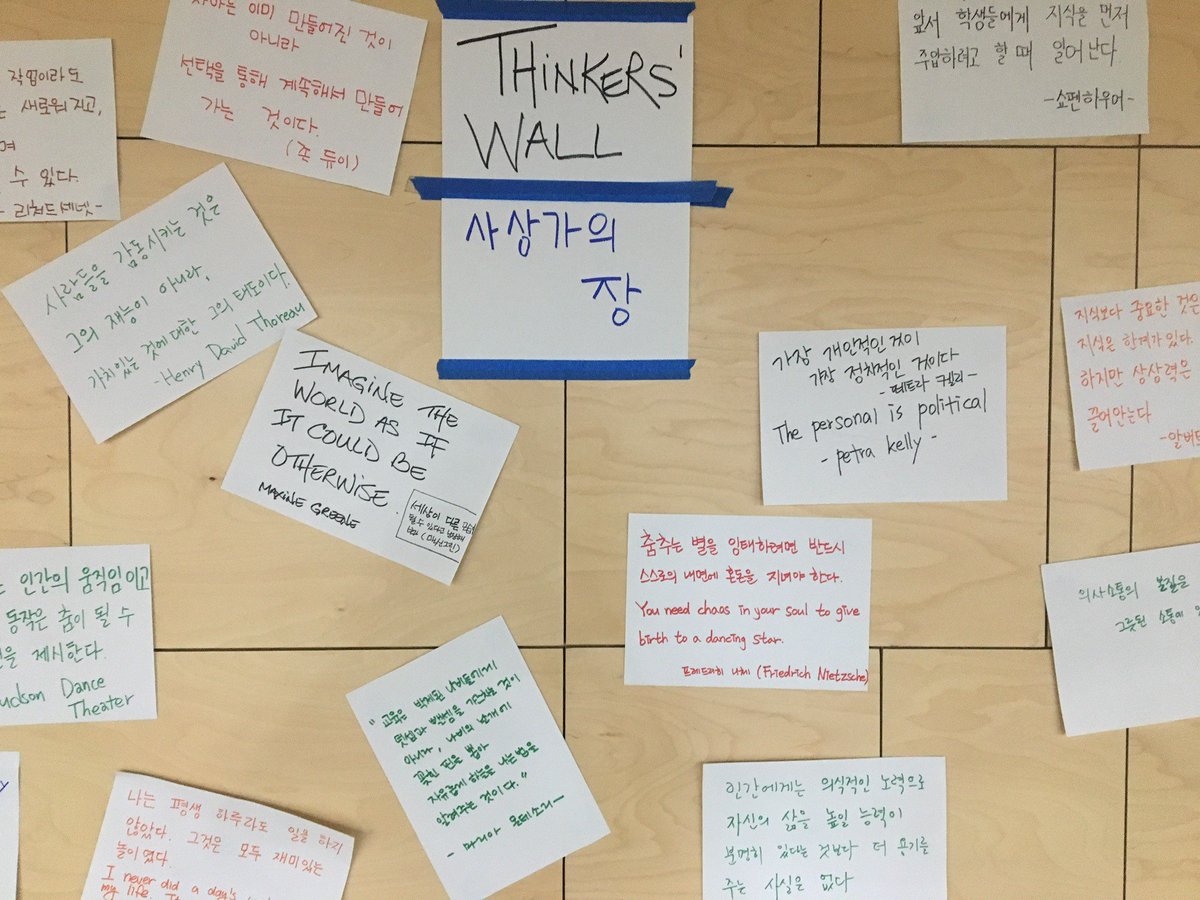 THINKERS'
WALL
사상가의
장
작업이라도
새로워지고,
수 있다.
- 리처드세넷-
자아는 이미 만들어진 것이
아니라
선택을 통해 계속해서 만들어
가는 것이다.
(존 듀이)
앞서 학생들에게 지식을 먼저
주입하려고 할 때 일어난다
-쇼펜하우어-
사람들을 감동시키는 것은
그의 재능이 아니라,
가치있는 것에 대한 그의 태도이다.
-Henry David Thoreau
IMAGINE THE
WORLD AS IF
IT COULD BE
OTHERWISE.
MAXINE GREENE
세상이 다른
가장 개인적인 것이
가장 정치적인 것이다
-페트라 켈리-
The personal is political
- petra kelly -
지식보다 중요한 것은
지식은 한계가 있다.
하지만 상상력은
끌어안는다
춤추는 별을 잉태하려면 반드시
스스로의 내면에 혼돈을 지녀야 한다.
You need chaos in your soul to give
birth to a dancing star.
프레드리히 니체 (Friedrich Nietzsche)
인간의 움직임이고
동작은 춤이 될 수
제시한다.
Dance
Theater
의사소통의 본질은
그릇된 소통에
"교육은 박제된 나비들에게
덧셈과 뺄셈을 가르치는 것이
아니라, 나비의 날개에
꽂힌 핀을 뽑아
자유롭게 하늘을 나는 법을
알려주는 것이다."
- 마리아 몬테소리-
나는 평생 하루라도 일을 하지
않았다. 그것은 모두 재미있는
놀이였다.
I never did a day's
my life.
인간에게는 의식적인 노력으로
자신의 삶을 높일 능력이
분명히 있다는 것보다 더 용기를
주는 사실은 없다